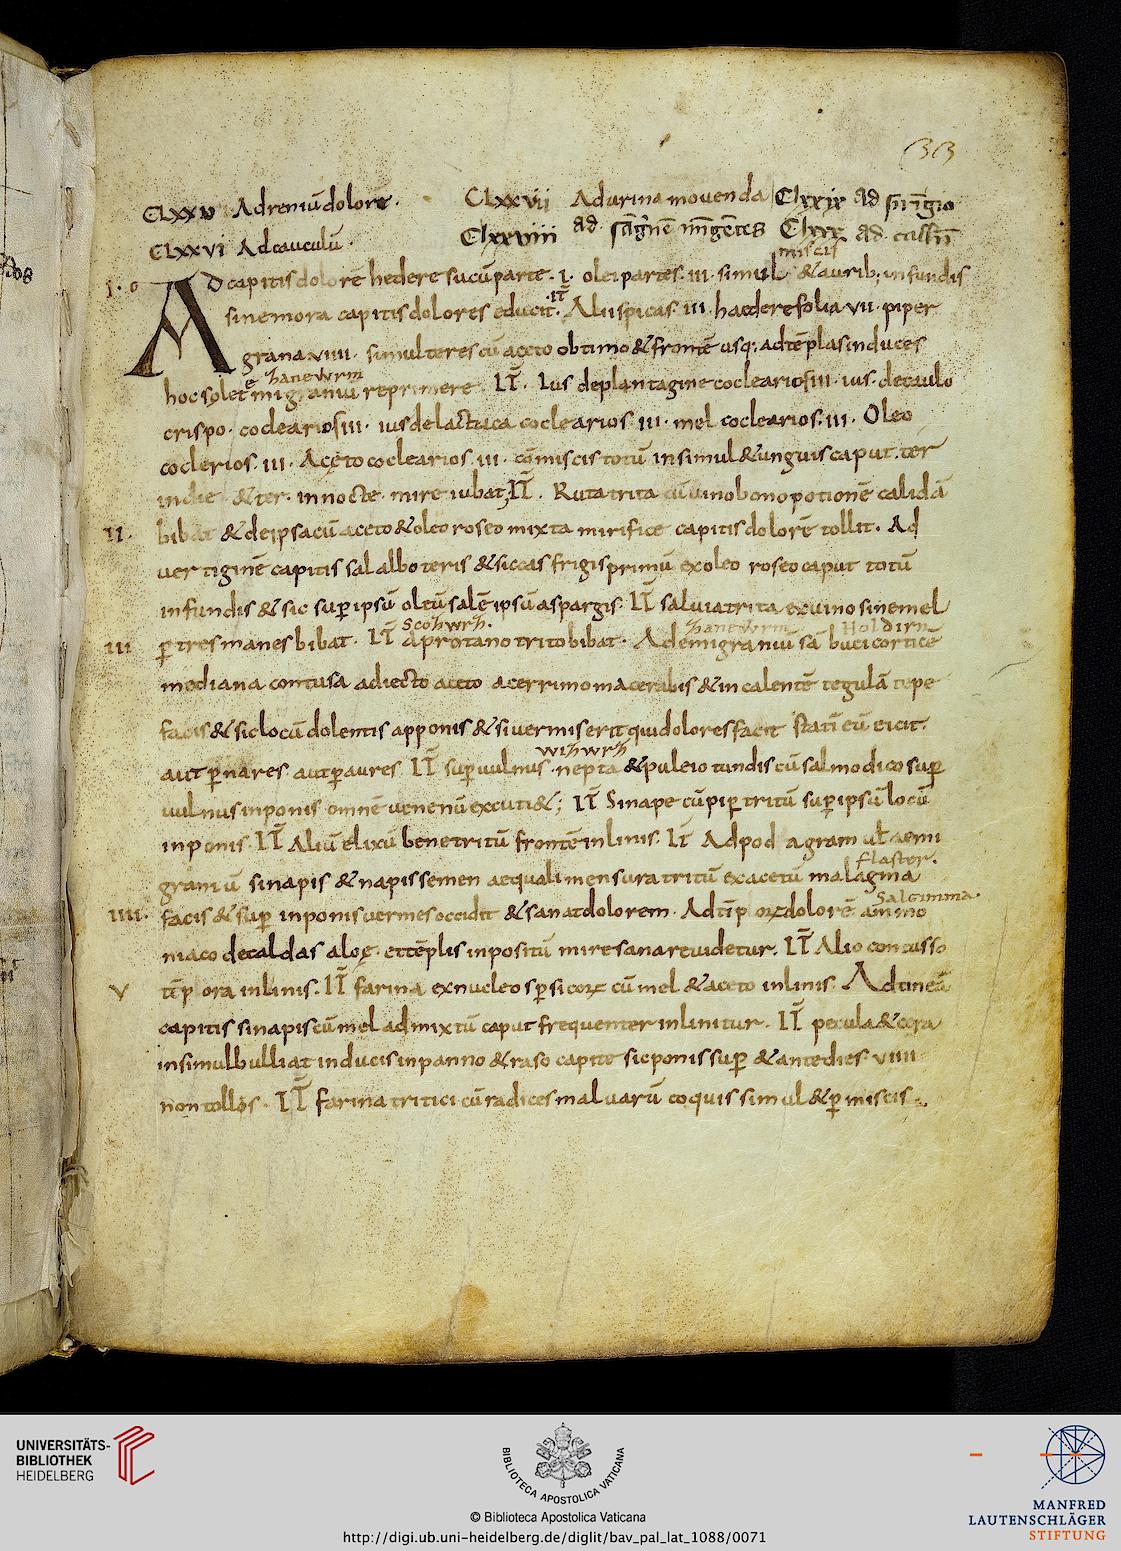 33
CLXXV Adreniū dolorē. CLXXVII Adurina movenda CLXXIX ad
CLXXVI Adcauculū CLXXVIII ad CLXXX ad
miscis
I. Ad capitis dolorē hedere sucū parte .I. olei partes .III. simul & aurib; infundis
sine mora capitis dolores educit. IT Alii spicas .III. haedere folia VII. piper
grana VIIII. simul teres cū aceto obtimo & frontē usq; ad tēplas induces
hoc solet emigraniū reprimere IT. Ius de plantagine coclearios III. ius de caulo
crispo. coclearios III. ius de lactuca coclearios .III. mel coclearios .III. Oleo
coclerios .III. Aceto coclearios .III. cōmiscis totū insimul & unguis caput ter
in die & ter in nocte mire iubat; IT. Ruta trita cū vino bono potionē calidā
II. bibat & de ipsa cū aceto & oleo roseo mixta mirifice capitis dolorē tollit. Ad
vertiginē capitis sal albo teris & siccas frigis primū ex oleo roseo caput totū
infundis & sic sup ipsū oleū salē ipsū aspargis. IT salvia trita ex vino sine mel
III p tres manes bibat. IT aprotano trito bibat. Ad emigraniū sābuci corticē
mediana contusa adiecto aceto acerrimo macerabis & in calentē tegulā tepe
facis & sic locū dolentis apponis & si vermis erit qui dolores facit statī eū eicit.
wizwrz
aut p nares aut p aures IT sup vulnus nepta & puleio tundis cū sal modico sup
vulnus inponis omnē venenū excuti&; IT Sinape cū pip tritū sup ipsū locū
inponis. IT Aliū elixū bene tritū frontē inlinis. IT Ad podagram ut aemi
flaster.
graniū sinapis & napis semen aequali mensura tritū ex acetū malagma
Salgimma.
IIII. facis & sup inponis vermes occidit & sanat dolorem. Ad tīporū dolorē ammo
niaco de caldas aloe. et tēplis inpositū mire sanare videtur. IT Alio contusso
V tīpora inlinis. IT farina ex nucleo psicorū cū mel & aceto inlinis. Ad tineā
capitis sinapis cū mel admixtū caput frequenter inlinitur. IT pecula & cera
insimul bulliat inducis in panno & raso capite sic ponis sup & ante dies VIIII
non tolles. IT farina tritici cū radices malvarū coquis simul & pmiscis.
UNIVERSITÄTS-
BIBLIOTHEK
HEIDELBERG
BIBLIOTECA APOSTOLICA VATICANA
© Biblioteca Apostolica Vaticana
http://digi.ub.uni-heidelberg.de/diglit/bav_pal_lat_1088/0071
MANFRED
LAUTENSCHLÄGER
STIFTUNG